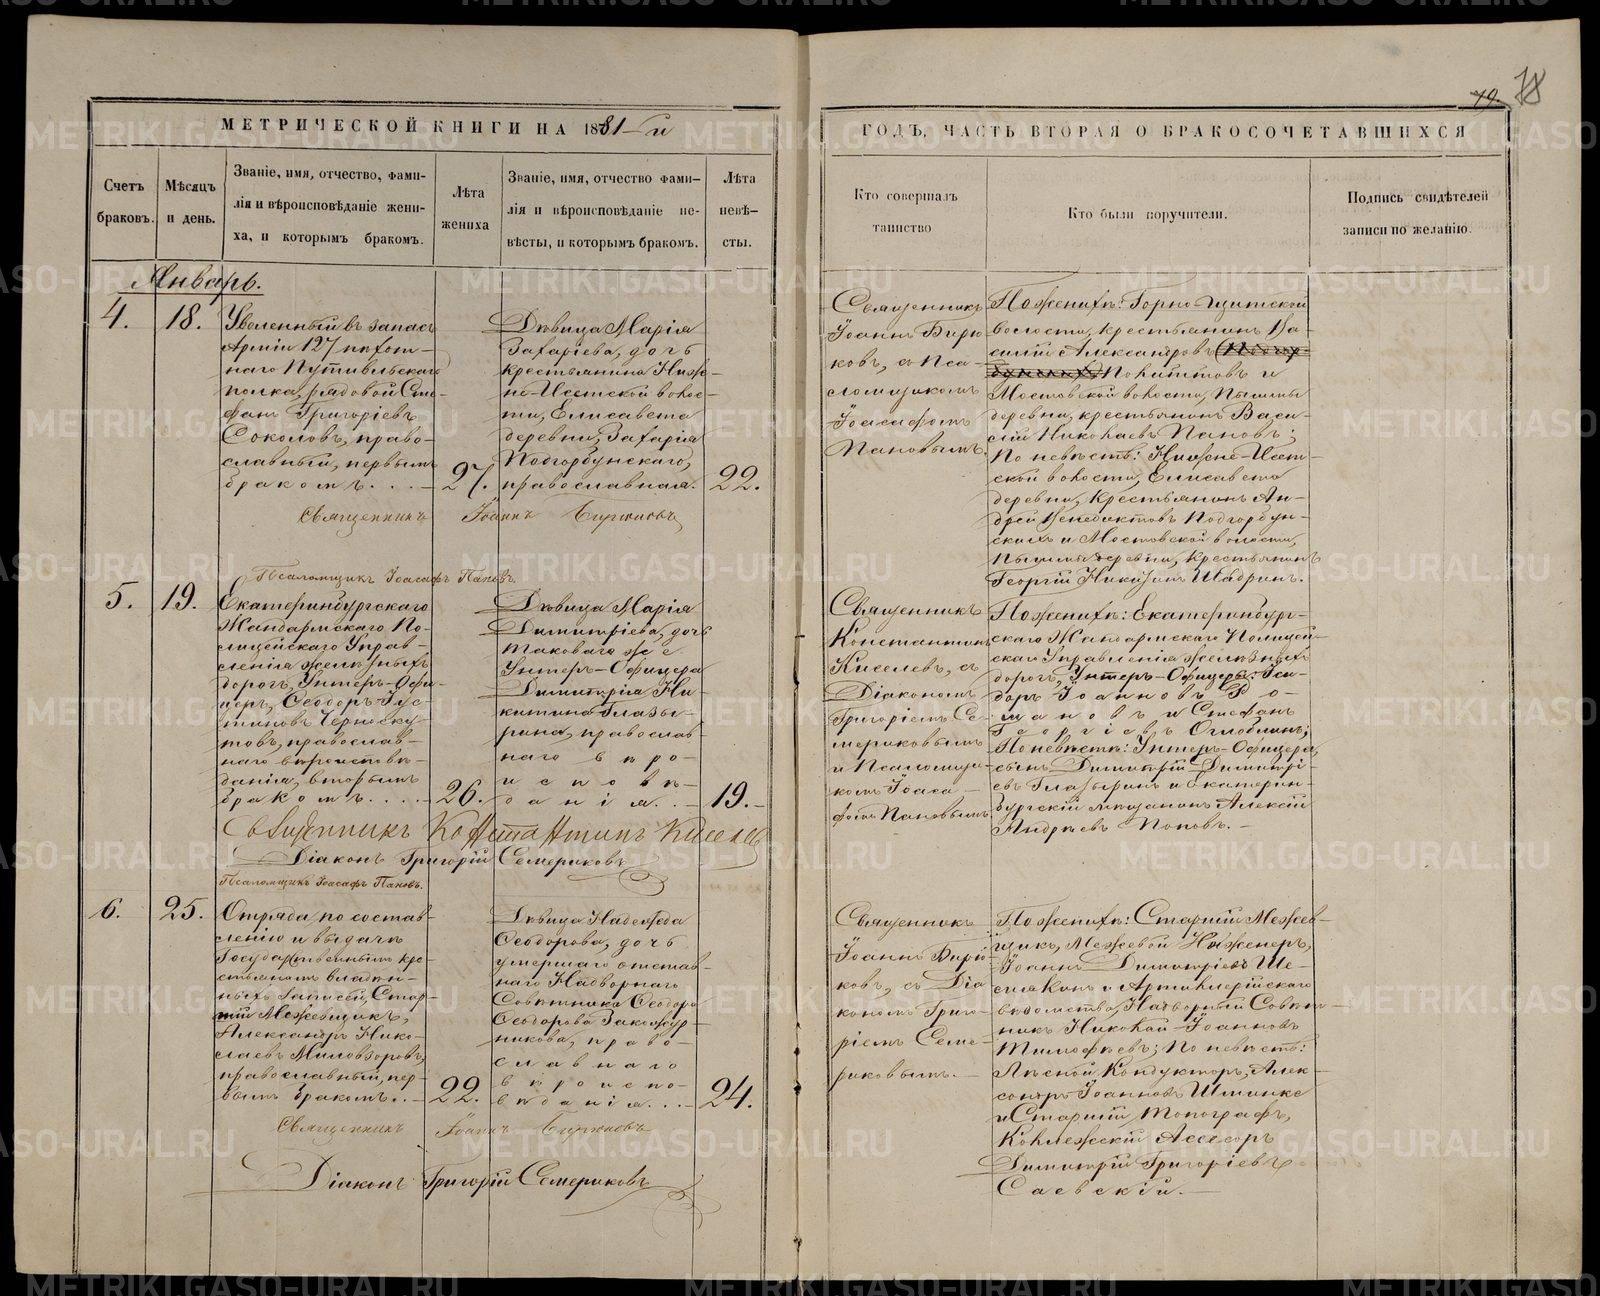 79. 78
МЕТРИЧЕСКОЙ КНИГИ НА 1881-й
ГОДЪ, ЧАСТЬ ВТОРАЯ О БРАКОСОЧЕТАВШИХСЯ
Счетъ
браковъ.
Мѣсяцъ
и день.
Званіе, имя, отчество, фами-
лія и вѣроисповѣданіе жени-
ха, и которымъ бракомъ.
Лѣта
жениха
Званіе, имя, отчество фами-
лія и вѣроисповѣданіе не-
вѣсты, и которымъ бракомъ.
Лѣта
невѣ-
сты.
Кто совершалъ
таинство
Кто были поручители.
Подпись свидѣтелей
записи по желанію.
Январь.
4.
18.
Уволенный въ запасъ
Арміи 127 пѣхот-
наго Путивльскаго
полка, рядовой Сте-
фанъ Григоріевъ
Соколовъ, право-
славный, первымъ
бракомъ. . . .
27.
Дѣвица Марія
Захаріева, дочь
крестьянина Ниж-
не-Исетской волос-
ти, Елисавета
деревни, Захарія
Подгорбунскаго,
православная.
22.
Священникъ
Іоаннъ Бирю
ковъ, съ Пса-
ломщикомъ
Іоасафомъ
Пановымъ.
По женихѣ: Горно Щитской
волости, крестьянинъ Ва-
силій Александровъ
Похитовъ и
Мостовской волости, Пышмы
деревни, крестьянинъ Васи-
лій Николаевъ Пановъ;
По невѣстѣ: Нижне-Исет-
ской волости, Елисавета
деревни, Крестьянинъ Ан-
дрей Венедиктовъ Подгорбун-
скихъ и Мостовской волости,
Пышмы деревни, Крестьянинъ
Георгій Никитинъ Шадринъ.
Священникъ Іоаннъ Бирюковъ
Псаломщикъ Іоасафъ Пановъ.
5.
19.
Екатеринбургскаго
Жандармскаго По-
лицейскаго Управ-
ленія желѣзныхъ
дорогъ, Унтеръ-Офи-
церъ, Ѳеодоръ Іус-
тиновъ Черноску-
товъ, православ-
наго вѣроисповѣ-
данія, вторымъ
бракомъ. . . .
26.
Дѣвица Марія
Димитріева, дочь
таковаго же
Унтеръ-Офицера
Димитрія Ни-
китина Глазы-
рина, православ-
наго вѣро-
исповѣ-
данія. .
19.
Священникъ
Константинъ
Киселевъ, съ
Діакономъ
Григоріемъ Се-
мериковымъ
и Псаломщи-
комъ Іоаса-
фомъ Пановымъ.
По женихѣ: Екатеринбург-
скаго Жандармскаго Полицей-
скаго Управленія желѣзныхъ
дорогъ, Унтеръ-Офицеры: Иси-
доръ Іоанновъ Ро-
мановъ и Стефанъ
Георгіевъ Оглоблинъ;
По невѣстѣ: Унтеръ-Офицера
сынъ Димитрій Димитрі-
евъ Глазыринъ и Екатерин-
бургскій мѣщанинъ Алексій
Андреевъ Поповъ.
Священникъ Константинъ Киселевъ
Діаконъ Григорій Семериковъ
Псаломщикъ Іоасафъ Пановъ.
6.
25.
Отряда по состав-
ленію и выдачѣ
Государственнымъ кре-
стьянамъ владѣн-
ныхъ Записей, Стар-
шій Межевщикъ,
Александръ Нико-
лаевъ Миловзоровъ,
православный, пер-
вымъ бракомъ. .
22.
Дѣвица Надежда
Ѳеодорова, дочь
умершаго отстав-
наго Надворнаго
Совѣтника Ѳеодора
Ѳеодорова Закожур-
никова, право-
славнаго
вѣроиспо-
вѣданія. . .
24.
Священникъ
Іоаннъ Бирю-
ковъ, съ Діа
кономъ Григо-
ріемъ Семе-
риковымъ.
По женихѣ: Старшій Межев-
щикъ, Межевой Инженеръ,
Іоаннъ Димитріевъ Ше-
стаковъ и Артиллерійскаго
вѣдомства, Надворный Совѣт-
никъ Николай Іоанновъ
Тимофѣевъ; По невѣстѣ:
Лѣсной Кондукторъ, Алек-
сандръ Іоанновъ Шминке
и Старшій Топографъ,
Коллежскій Ассесоръ
Димитрій Григоріевъ
Саевскій.
Священникъ Іоаннъ Бирюковъ
Діаконъ Григорій Семериковъ
METRIKI.GASO-URAL.RU